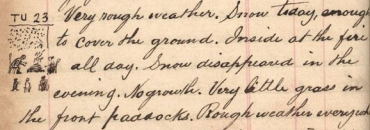 TU 23 Very rough weather. Snow today, enough
to cover the ground. Inside at the fire
all day. Snow disappeared in the
evening. No growth. Very little grass in
the front paddocks. Rough weather